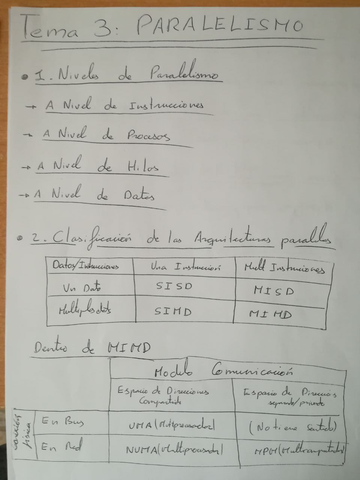 Tema 3: PARALELISMO
1. Niveles de Paralelismo
→ A Nivel de Instrucciones
→ A Nivel de Procesos
→ A Nivel de Hilos
→ A Nivel de Datos
2. Clasificación de las Arquitecturas paralelas
Datos/Instrucciones Una Instrucción Mult Instrucciones
Un Dato SISD MISD
Multiples datos SIMD MIMD
Dentro de MIMD
Modelo Comunicación
Espacio de Direcciones Compartido Espacio de Direcciones separado/privado
conexión física
En Bus UMA (Multiprocesador) (No tiene sentido)
En Red NUMA (Multiprocesador) MPM (Multicomputador)